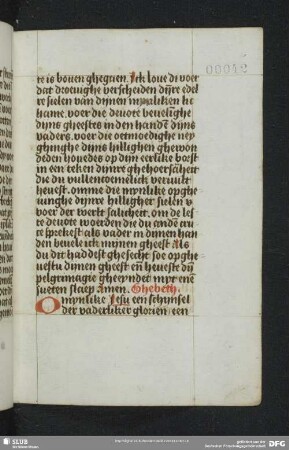 te is bouen ghegaen. Ick loue di voer
dat droeuighe verscheiden dijnre edel
re sielen van dijnen mynliken he
liame. voer die deuote beuelighe
dijns gheestes in den handē dijns
vaders. voer die oetmoedighe ney
ghinghe dijns hillighen ghewon
den houedes op dijn eerlike borst
in een teken dijnre ghehoersāheit
die du vullencoemelick vervult
heuest. om die mynlike opghe
uinghe dijnre hilligher sielen
voer der werlt salicheit. om de les
te deuote woerden die du ande cru
ce sprekest als vader in dinen han
den beuele ick mijnen gheest Als
du dit haddest ghesecht soe opghe
uestu dinen gheest eñ heuest dijn
pelgrimagie gheeyndet myt enē
sueten slaep Amen. Ghebeth.
O mynlike Jesu een schijnsel
der vaderliker glorien een
00012
SLUB
DFG